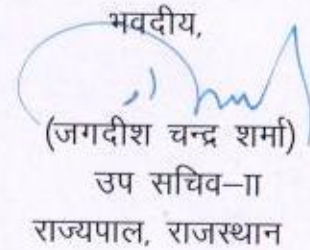 भवदीय,
(जगदीश चन्द्र शर्मा)
उप सचिव–II
राज्यपाल, राजस्थान